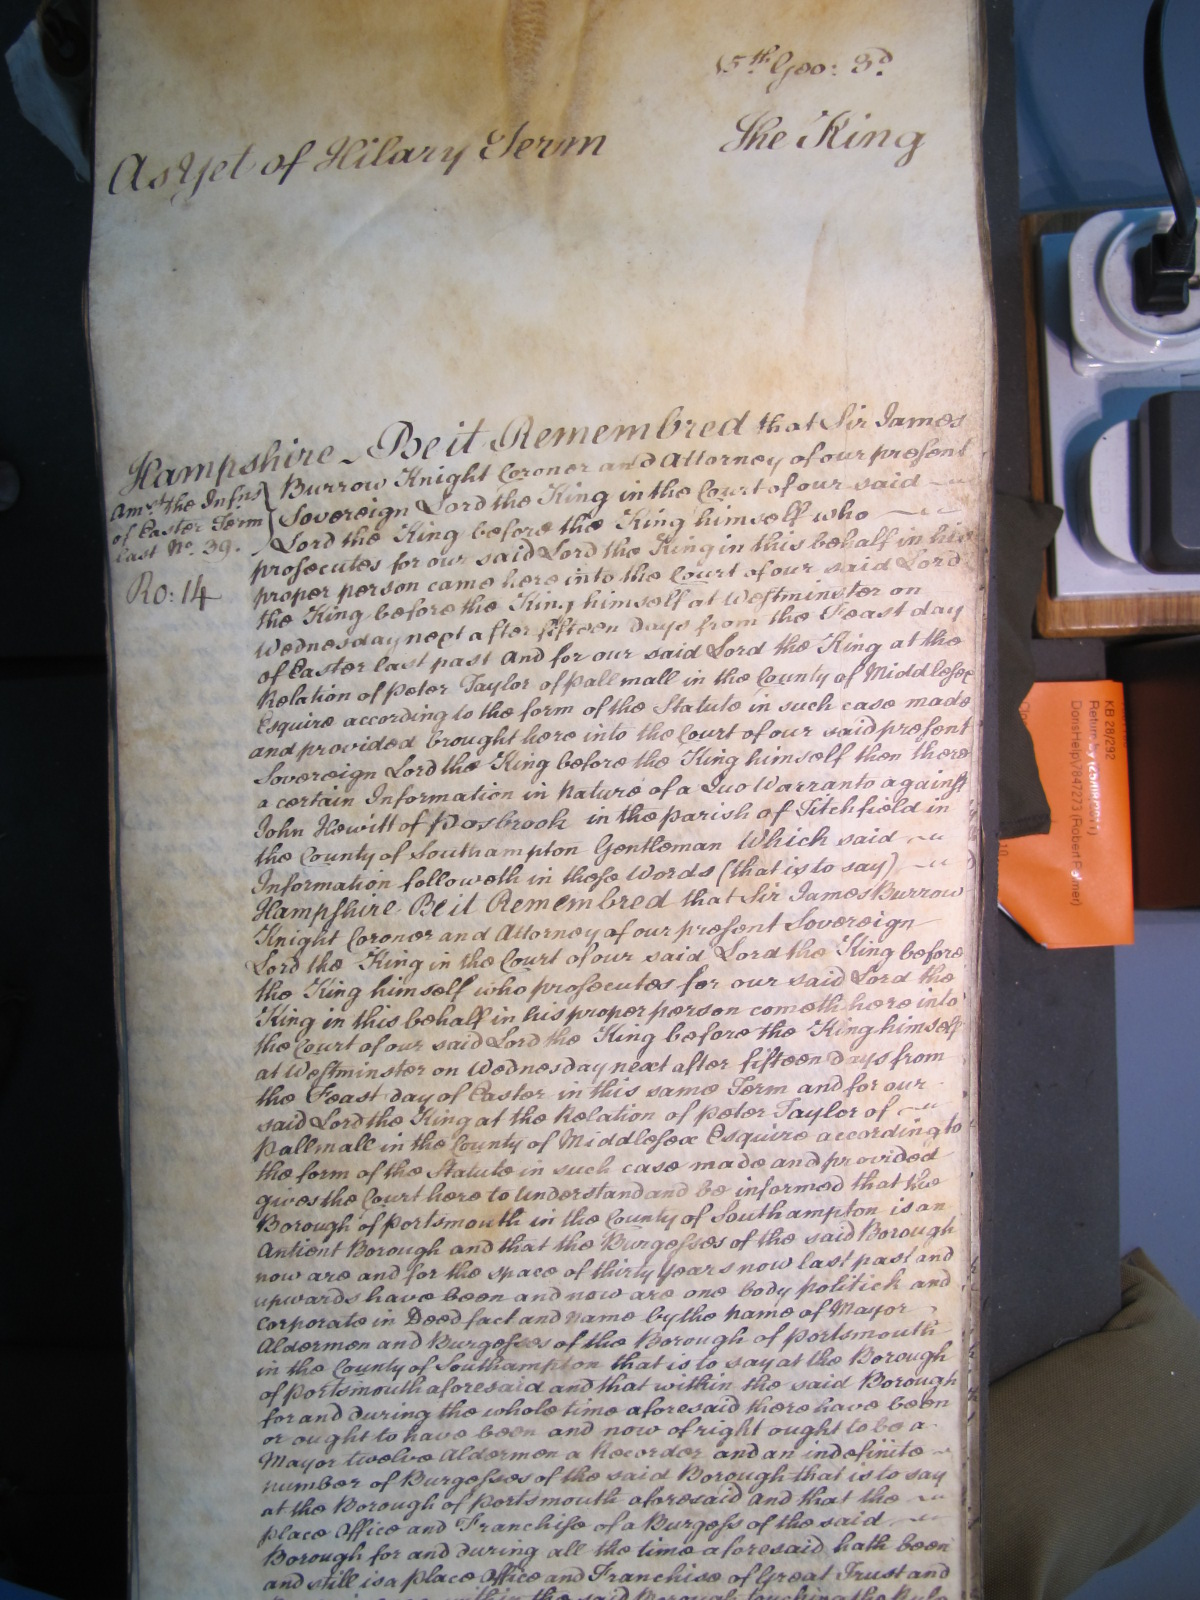 15th Geo: 3d
As Yet of Hilary Term The King
Hampshire Be it Remembred that Sir James
Burrow Knight Coroner and Attorney of our present
Amgst the Infns
of Easter Term
last No. 39.
Sovereign Lord the King in the Court of our said
Lord the King before the King himself who
prosecutes for our said Lord the King in this behalf in his
Ro: 14
proper person came here into the Court of our said Lord
the King before the King himself at Westminster on
Wednesday next after fifteen Days from the Feast day
of Easter last past and for our said Lord the King at the
Relation of Peter Taylor of Pallmall in the County of Middlesex
Esquire according to the form of the Statute in such case made
and provided brought here into the Court of our said present
Sovereign Lord the King before the King himself then there
a certain Information in Nature of a Quo Warranto against
John Hewitt of Posbrook in the parish of Titchfield in
the County of Southampton Gentleman Which said
Information followeth in these Words (that is to say)
Hampshire Be it Remembred that Sir James Burrow
Knight Coroner and Attorney of our present Sovereign
Lord the King in the Court of our said Lord the King before
the King himself who prosecutes for our said Lord the
King in this behalf in his proper person cometh here into
the Court of our said Lord the King before the King himself
at Westminster on Wednesday next after fifteen days from
the Feast day of Easter in this same Term and for our
said Lord the King at the Relation of Peter Taylor of
Pallmall in the County of Middlesex Esquire according to
the form of the Statute in such case made and provided
gives the Court here to understand and be informed that the
Borough of Portsmouth in the County of Southampton is an
Antient Borough and that the Burgesses of the said Borough
now are and for the space of thirty years now last past and
upwards have been and now are one body politick and
corporate in Deed fact and name by the name of Mayor
Aldermen and Burgesses of the Borough of Portsmouth
in the County of Southampton that is to say at the Borough
of Portsmouth aforesaid and that within the said Borough
for and during the whole time aforesaid there have been
or ought to have been and now of right ought to be a
Mayor twelve Aldermen a Recorder and an indefinite
number of Burgesses of the said Borough that is to say
at the Borough of Portsmouth aforesaid and that the
place Office and Franchise of a Burgess of the said
Borough for and during all the time aforesaid hath been
and still is a place Office and Franchise of Great Trust and
within the said Borough touching the Rule
KB 28/292
Return by (25/08/2011)
(Robert Palmer)